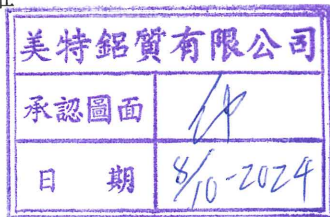 美特鋁質有限公司
承認圖面
日 期 8/10-2024